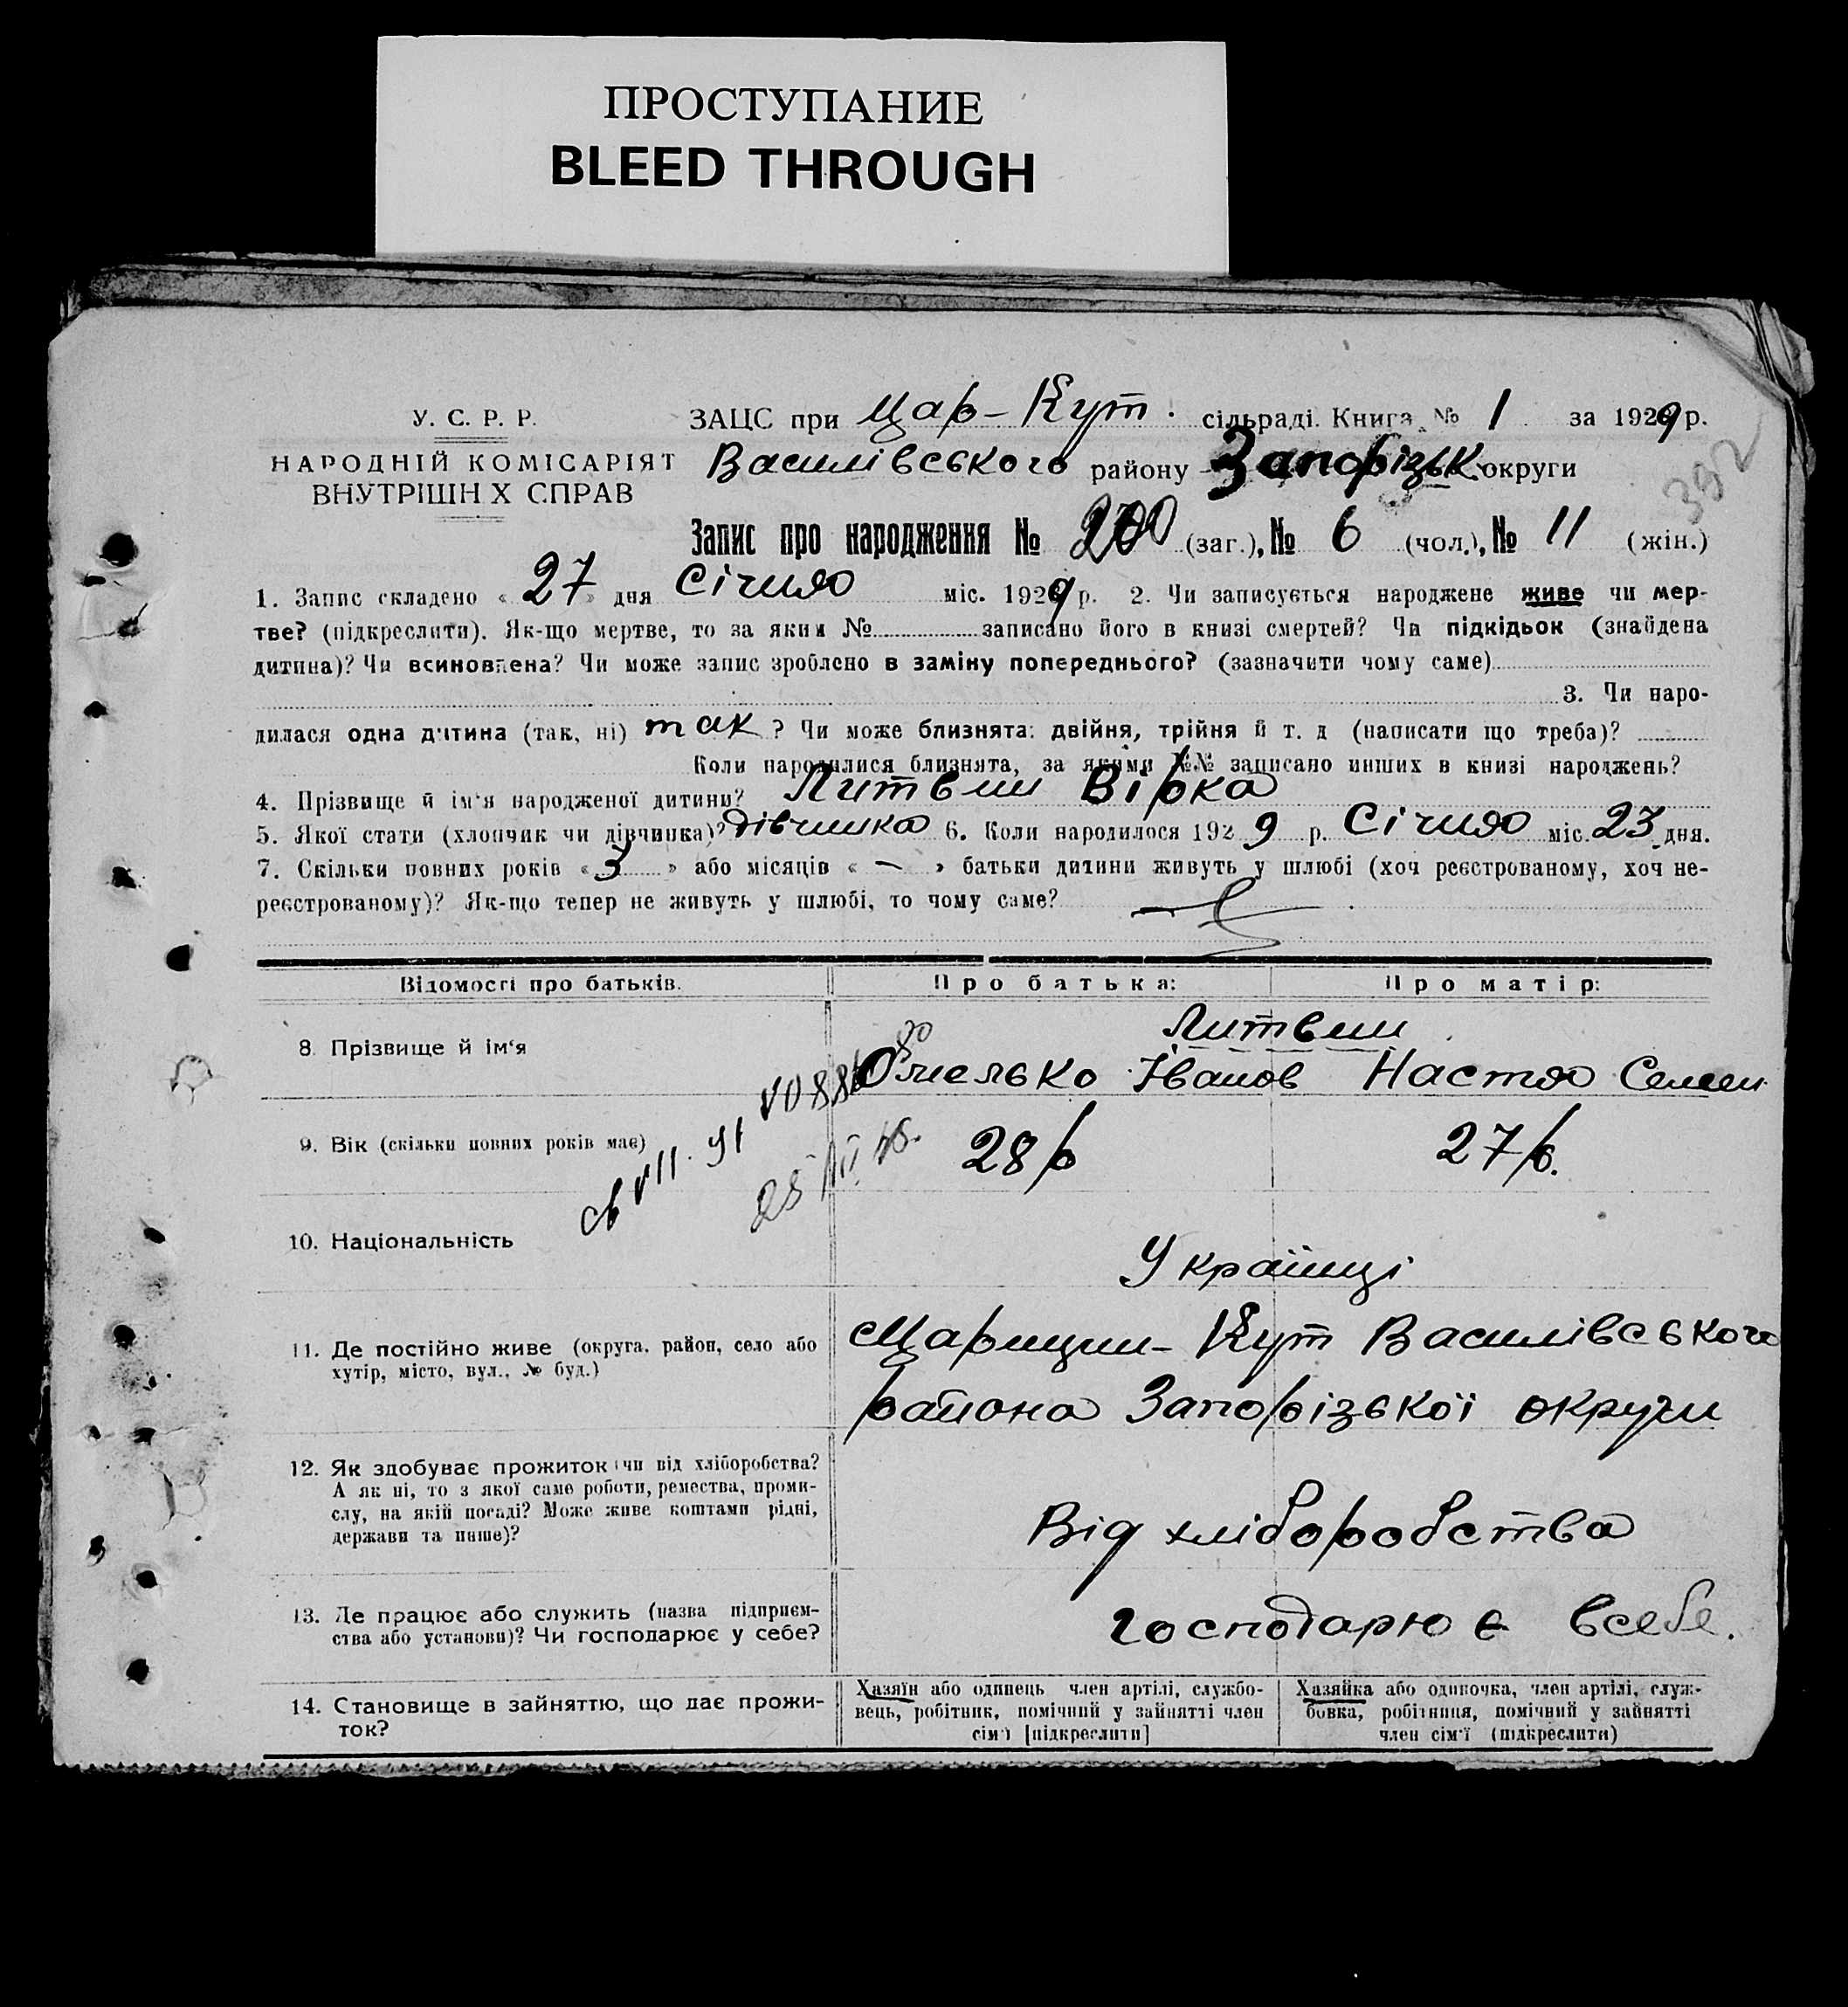 ПРОСТУПАНИЕ
BLEED THROUGH
У. С. Р. Р.
НАРОДНІЙ КОМІСАРІЯТ
ВНУТРІШН Х СПРАВ
ЗАЦС при Цар-Кут. сільраді. Книга № 1 за 1929 р.
Василівського району Запорізьк округи
392
Запис про народження № (заг.), № 6 (чол.), № 11 (жін.)
1. Запис складено « 27 » дня Січня міс. 1929 р. 2. Чи записується народжене живе чи мер-
тве? (підкреслити). Як-що мертве, то за яким № записано його в книзі смертей? Чи підкідьок (знайдена
дитина)? Чи всиновлена? Чи може запис зроблено в заміну попереднього? (зазначити чому саме)
3. Чи наро-
дилася одна дитина (так, ні) так ? Чи може близнята: двійня, трійня й т. д (написати що треба)?
Коли народилися близнята, за якими №№ записано инших в книзі народжень?
4. Прізвище й ім'я народженої дитини? Литвин Вірка
5. Якої стати (хлопчик чи дівчинка)? дівчинка 6. Коли народилося 1929 р. Січня міс. 23 дня.
7. Скільки повних років « 3 » або місяців « — » батьки дитини живуть у шлюбі (хоч реєстрованому, хоч не-
реєстрованому)? Як-що тепер не живуть у шлюбі, то чому саме?
Відомості про батьків.
Про батька:
Про матір:
8. Прізвище й ім'я
Литвин
Омелько Іванов Настя Семен
9. Вік (скільки повних років має)
28 р
27 р.
10. Національність
Українці
11. Де постійно живе (округа, район, село або
хутір, місто, вул., № буд.)
Царицин-Кут Василівського
района Запорізької округи
12. Як здобуває прожиток (чи від хліборобства?
А як ні, то з якої саме роботи, ремества, проми-
слу, на якій посаді? Може живе коштами рідні,
держави та инше)?
Від хліборобства
13. Де працює або служить (назва підприєм-
ства або установи)? Чи господарює у себе?
господарює всебе.
14. Становище в зайняттю, що дає прожи-
ток?
Хазяїн або одинець член артілі, службо-
вець, робітник, помічний у зайнятті член
сім'ї [підкреслити]
Хазяйка або одиночка, член артілі, служ-
бовка, робітниця, помічний у зайнятті
член сім'ї (підкреслити)